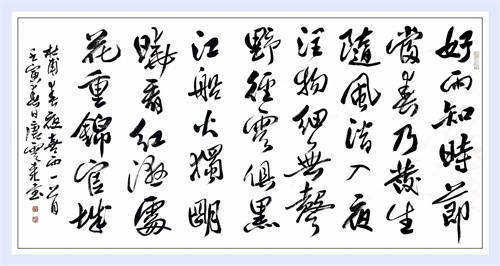 好雨知時節
當春乃發生
隨風潛入夜
潤物細無聲
野徑雲俱黑
江船火獨明
曉看紅濕處
花重錦官城
杜甫春夜喜雨一首
壬寅春日唐雲來書